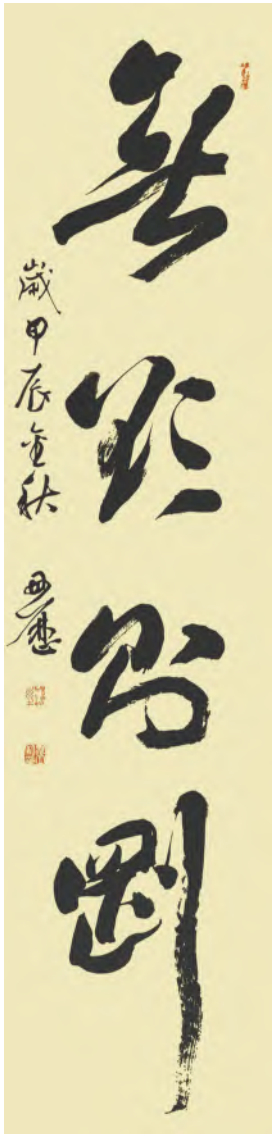 無欲則剛
歲甲辰金秋